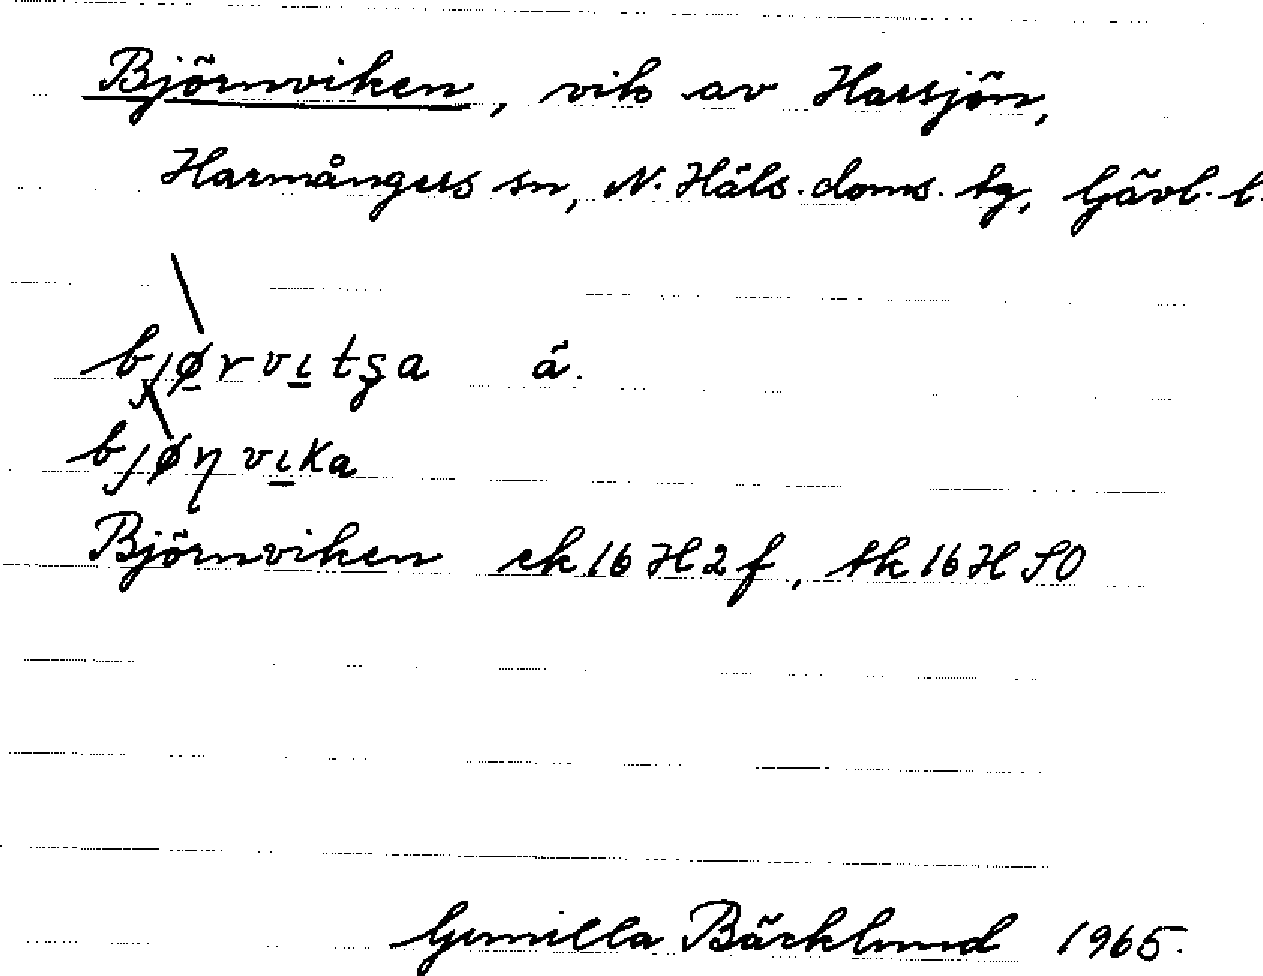 Björnviken, vik av Harsjön,
Harmångers sn, N. Häls. doms. tg, Gävl. l.
bjørvıtʂa ä.
bjøŋvıka
Björnviken ek 16 H 2 f, tk 16 H SO
Gunilla Bäcklund 1965.